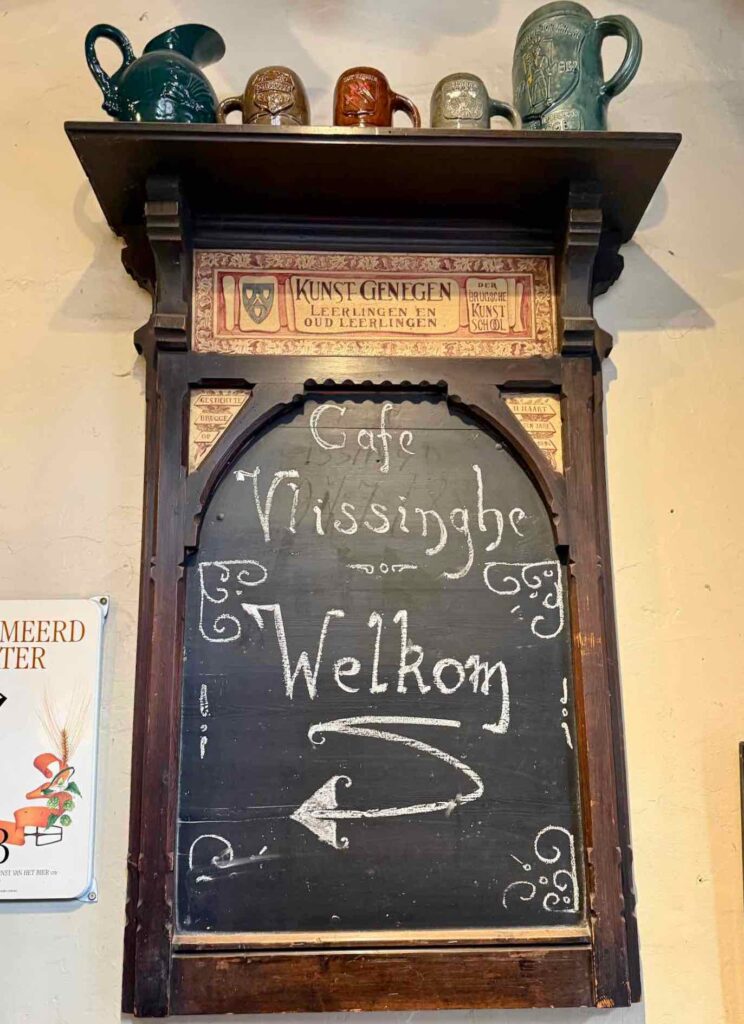 KUNST GENEGEN
LEERLINGEN EN
OUD LEERLINGEN
DER
BRUGSCHE
KUNST
SCHOOL
GESTICHT TE
BRUGGE
OP
MAART
Cafe
Vlissinghe
Welkom
MEERD
TER
NST VAN HET BIER